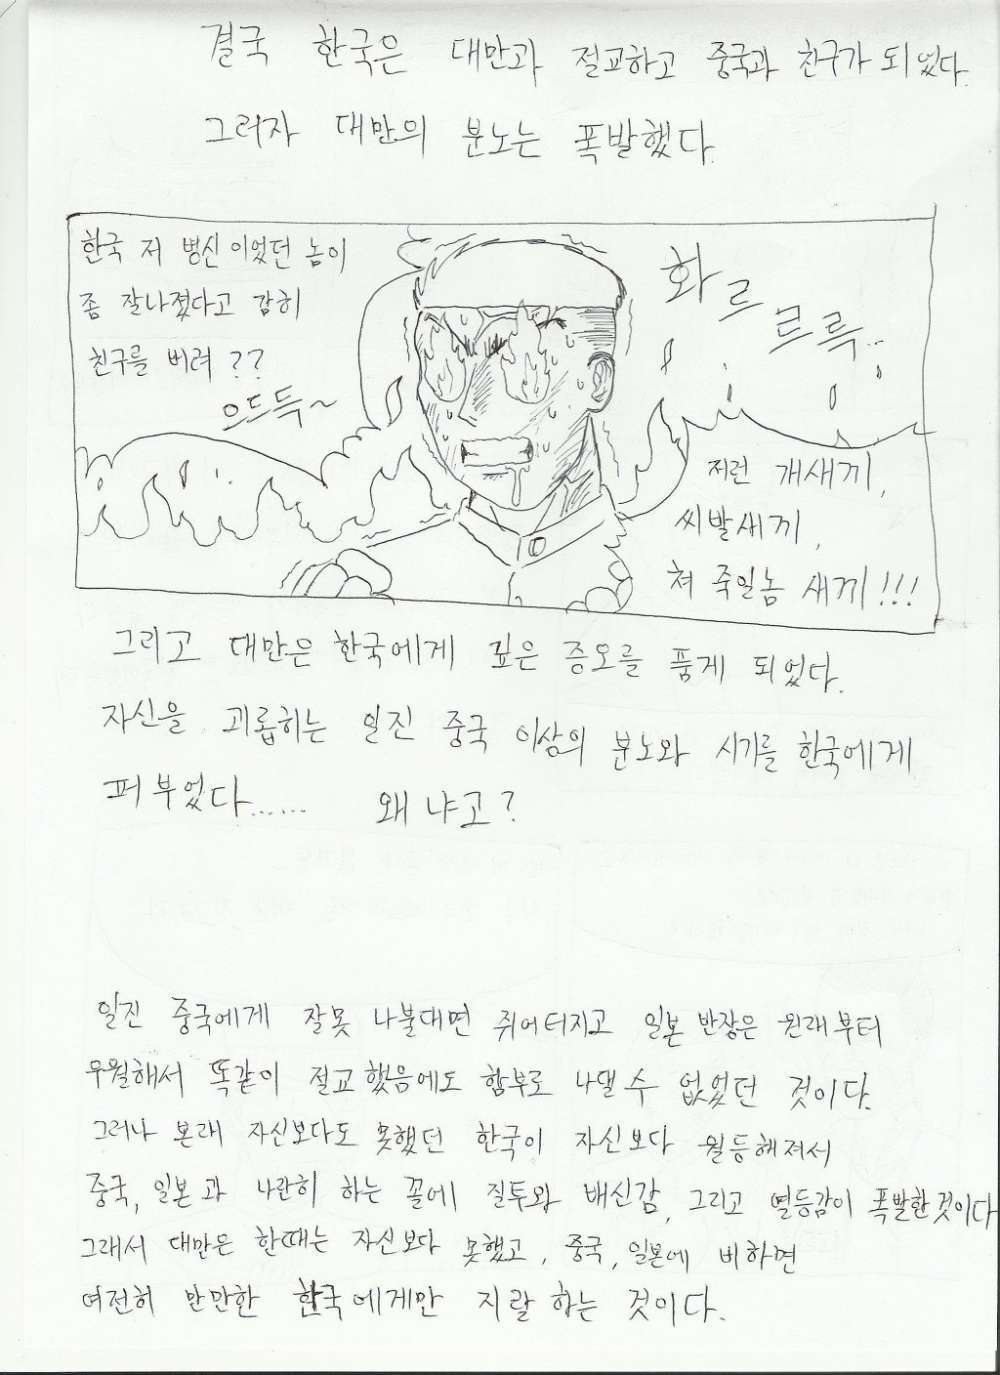 결국 한국은 대만과 절교하고 중국과 친구가 되었다.
그러자 대만의 분노는 폭발했다.
한국 저 병신이었던 놈이
좀 잘나졌다고 감히
친구를 버려??
으드득~
화르르륵..
저런 개새끼,
씨발새끼,
쳐 죽일놈 새끼!!!
그리고 대만은 한국에게 깊은 증오를 품게 되었다.
자신을 괴롭히는 일진 중국 이상의 분노와 시기를 한국에게
퍼부었다...... 왜냐고?
일진 중국에게 잘못 나불대면 쥐어터지고 일본 반장은 원래부터
우월해서 똑같이 절교했음에도 함부로 나댈 수 없었던 것이다.
그러나 본래 자신보다도 못했던 한국이 자신보다 월등해져서
중국, 일본과 나란히 하는 꼴에 질투와 배신감, 그리고 열등감이 폭발한것이다
그래서 대만은 한때는 자신보다 못했고, 중국, 일본에 비하면
여전히 만만한 한국에게만 지랄하는 것이다.